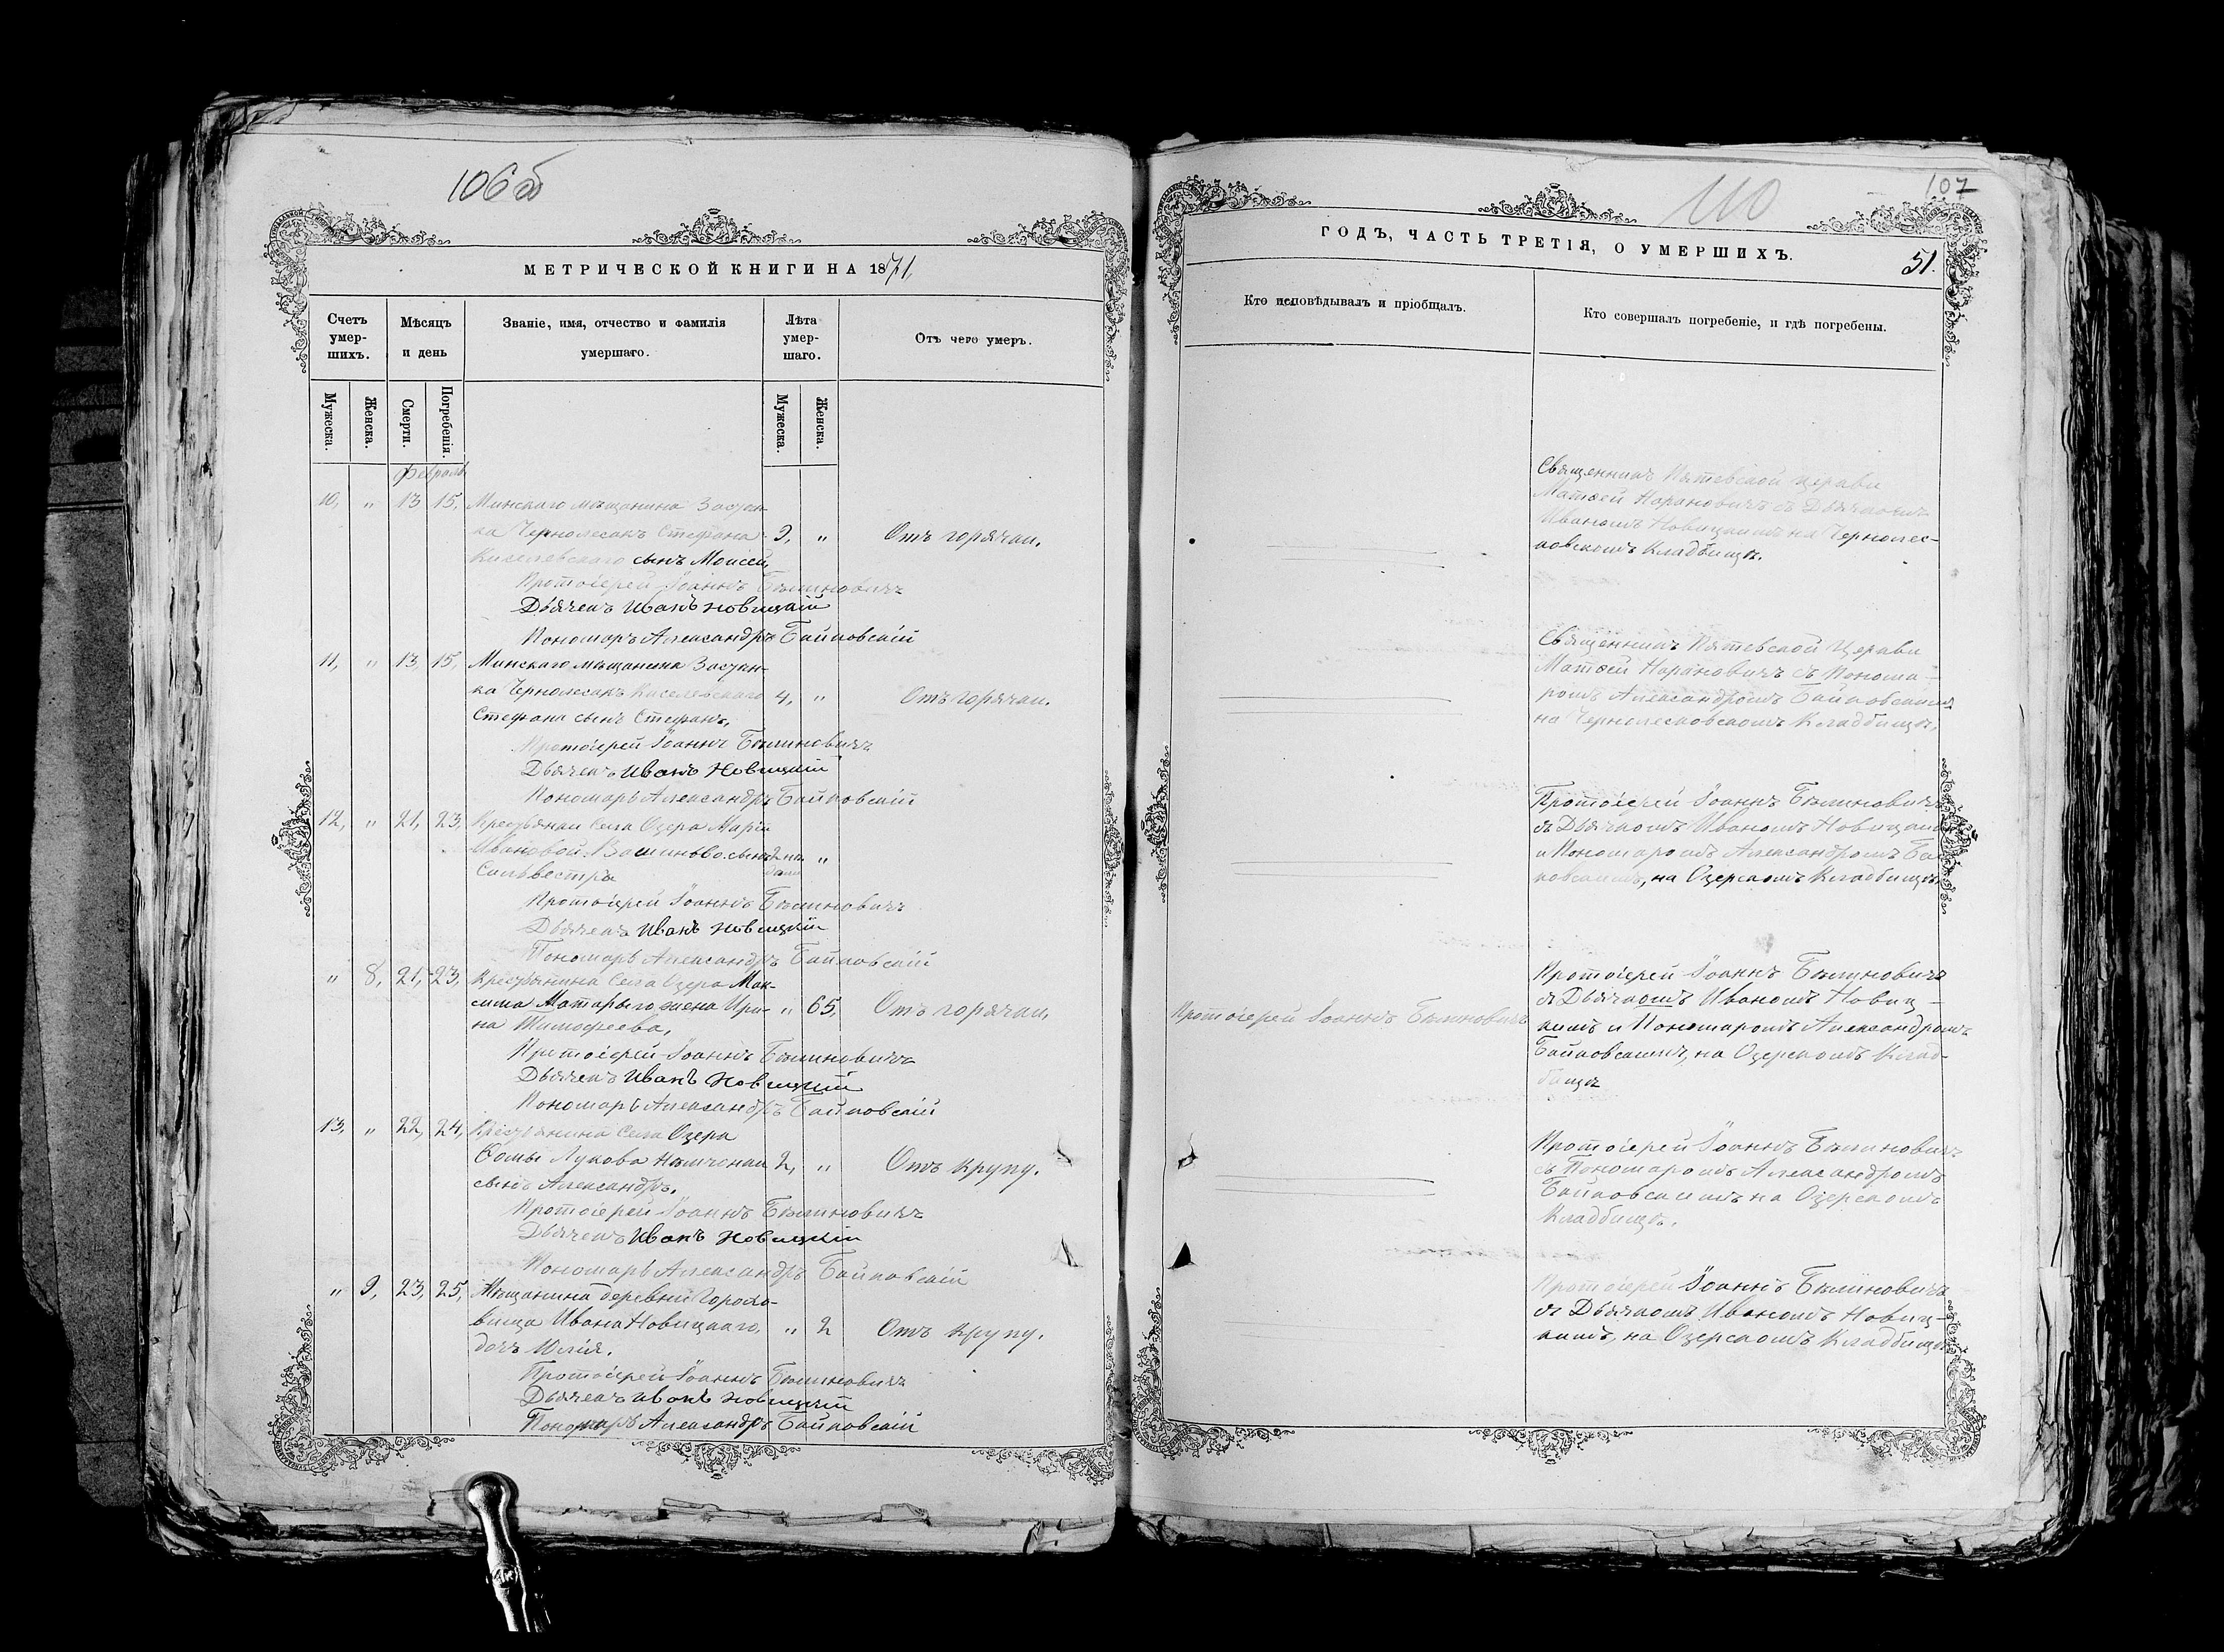 106об
МЕТРИЧЕСКОЙ КНИГИ НА 1871,
Счетъ умер-шихъ.
Мѣсяцъ и день
Званіе, имя, отчество и фамилія умершаго.
Лѣта умер-шаго.
Отъ чего умеръ.
Мужеска.
Женска.
Смерти.
Погребенія.
Мужеска.
Женска.
Февраль
10, " 13 15, Минскаго мѣщанина Застѣн-
ка Чернолесокъ Стефана 9, " Отъ горячки.
Киселевскаго сынъ Моисей,
Протоіерей Іоаннъ Бѣлиновичъ
Дьячекъ Иванъ Новицкій
Пономарь Александръ Байковскій
11, " 13, 15, Минскаго мѣщанина Застѣн-
ка Чернолесокъ Киселевскаго 4, " Отъ горячки.
Стефана сынъ Стефанъ,
Протоіерей Іоаннъ Бѣлиновичъ
Дьячекъ Иванъ Новицкій
Пономарь Александръ Байковскій
12, " 21, 23, Крестьянки Села Озера Маріи
Ивановой сынъ "
Сильвестръ
Протоіерей Іоаннъ Бѣлиновичъ
Дьячекъ Иванъ Новицкій
Пономарь Александръ Байковскій
" 8, 21, 23, Крестьянина Села Озера Мак-
сима жена Ири- " 65, Отъ горячки,
на Тимофеева,
Протоіерей Іоаннъ Бѣлиновичъ
Дьячекъ Иванъ Новицкій
Пономарь Александръ Байковскій
13, " 22, 24, Крестьянина Села Озера
Ѳомы Лукова 2, " Отъ крупу.
сынъ Александръ,
Протоіерей Іоаннъ Бѣлиновичъ
Дьячекъ Иванъ Новицкій
Пономарь Александръ Байковскій
" 9, 23, 25, Мѣщанина деревни Городо-
вища Ивана Новицкаго, " 2 Отъ крупу.
дочь Юлія.
Протоіерей Іоаннъ Бѣлиновичъ
Дьячекъ Иванъ Новицкій
Пономарь Александръ Байковскій
110
107
ГОДЪ, ЧАСТЬ ТРЕТІЯ, О УМЕРШИХЪ.
51.
Кто исповѣдывалъ и пріобщалъ.
Кто совершалъ погребеніе, и гдѣ погребены.
Священникъ Пятевской церкви
Матѳей Нарановичъ съ Дьячкомъ
Иваномъ Новицкимъ на Чернолес-
ковскомъ Кладбищѣ.
Священникъ Пятевской Церкви
Матѳей Нарановичъ съ Понома-
ромъ Александромъ Байковскимъ
на Чернолесковскомъ Кладбищѣ,
Протоіерей Іоаннъ Бѣлиновичъ
съ Дьячкомъ Иваномъ Новицким
и Пономаромъ Александромъ Бай
ковскимъ, на Озерскомъ Кладбищѣ,
Протоіерей Іоаннъ Бѣлиновичъ
Протоіерей Іоаннъ Бѣлиновичъ
съ Дьячкомъ Иваномъ Новиц-
кимъ и Пономаромъ Александромъ
Байковскимъ, на Озерскомъ Клад-
бищѣ
Протоіерей Іоаннъ Бѣлиновичъ
съ Пономаромъ Александромъ
Байковскимъ на Озерскомъ
Кладбищѣ.
Протоіерей Іоаннъ Бѣлиновичъ
съ Дьячкомъ Иваномъ Новиц-
кимъ, на Озерскомъ Кладбищѣ